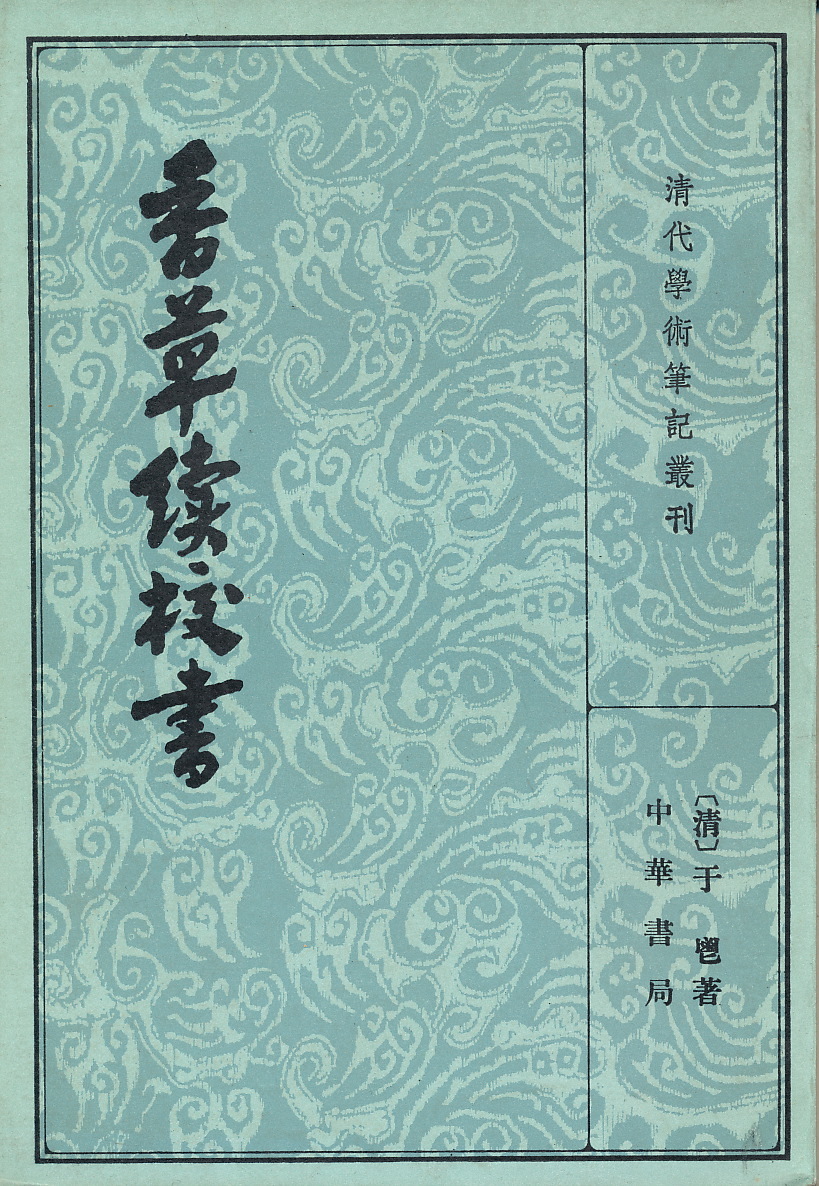 清代學術筆記叢刊
〔清〕于鬯著
中華書局
香草续校書